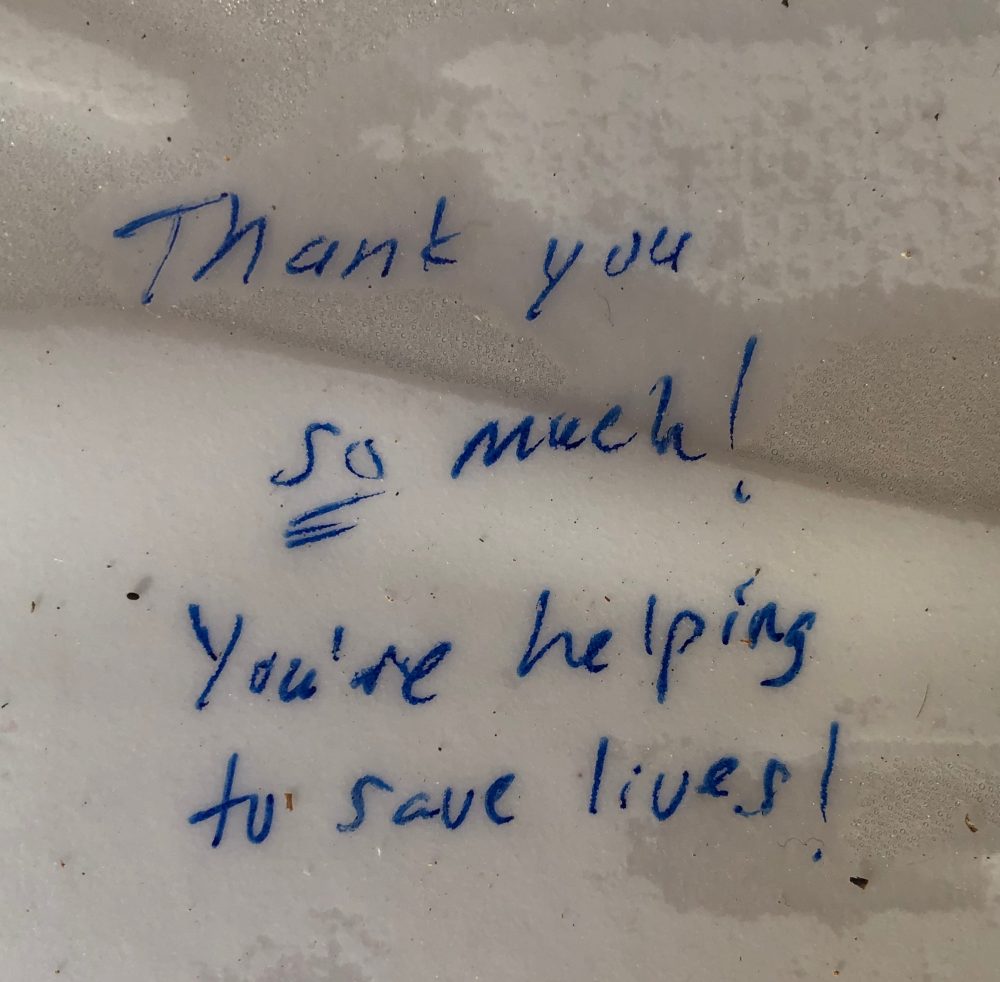 Thank you
so much!
You're helping
to save lives!